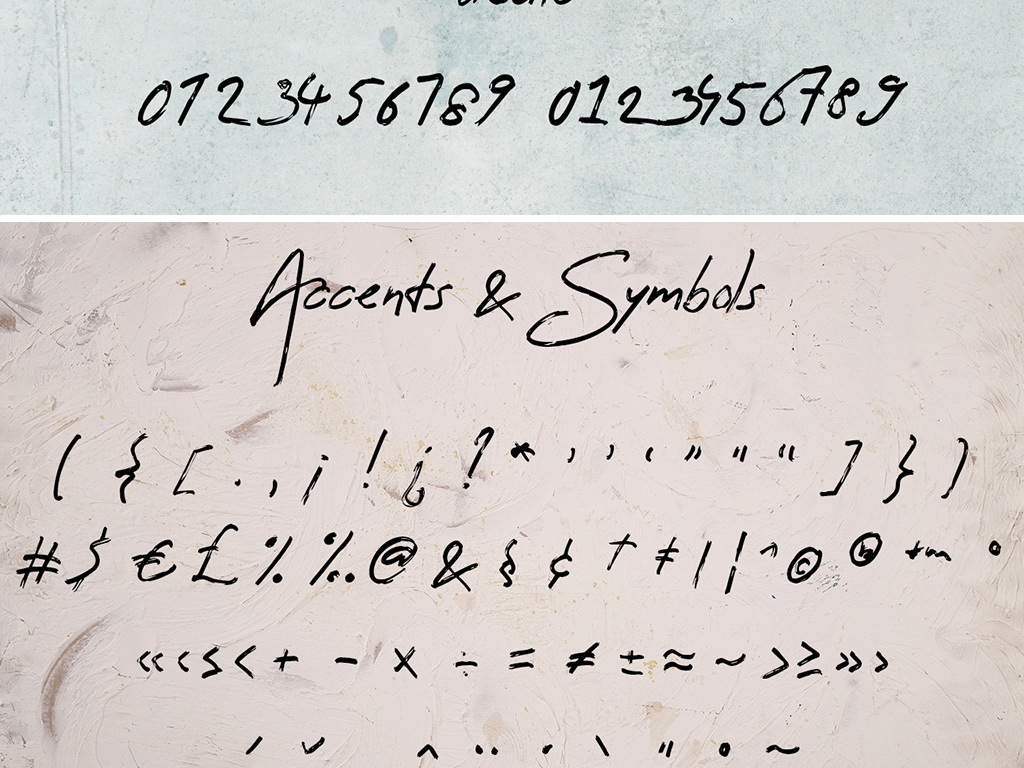 0123456789 0123456789
Accents & Symbols
( { [ . , ¡ ! ¿ ? * , ' ‘ „ " “ ] } )
# $ € £ % ‰ @ & § ¢ † ‡ | ¦ ^ © ® ™ °
« ‹ ≤ < + − × ÷ = ≠ ± ≈ ~ > ≥ » ›
´ ˇ ˆ ¨ ˙ ` ˝ ˚ ˜